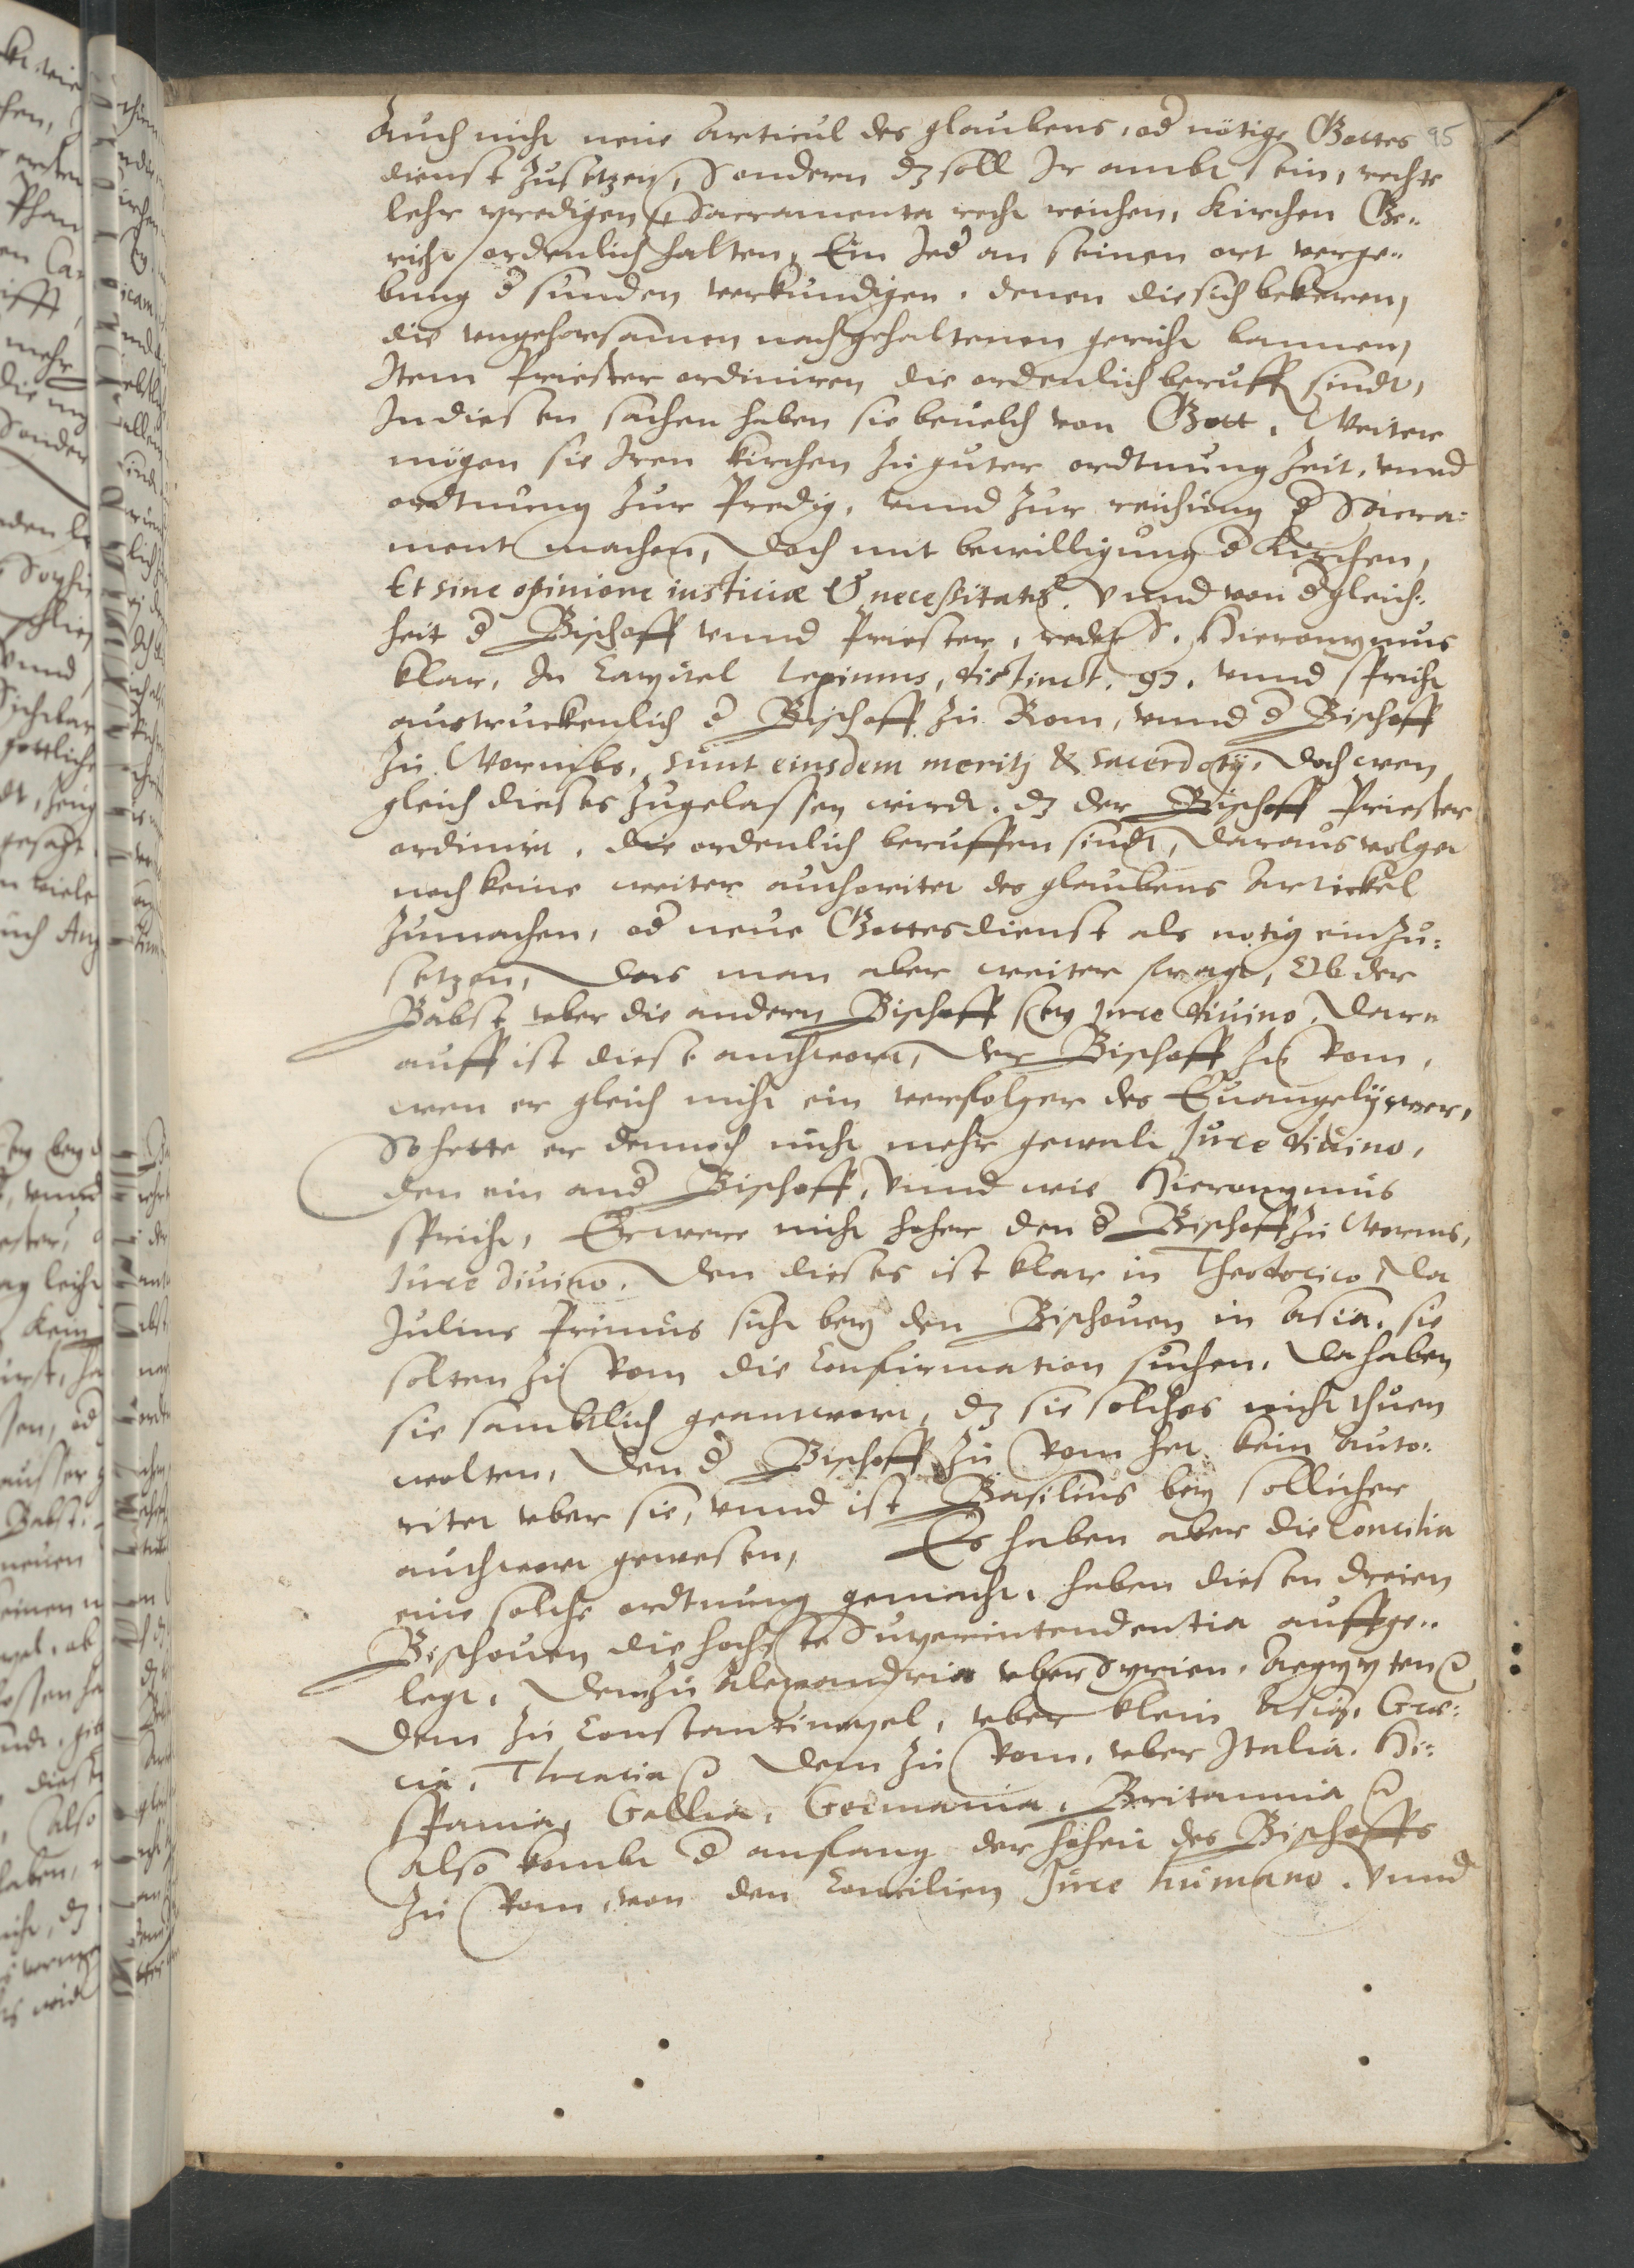 95
Auch nicht neue Articul des glaubens, od nötige Gottes
dienst zusetzen, Sondern dz soll Ir ambt sein, rechte
lehr predigen, Sacramenta recht reichen, Kirchen Ge-
richt ordenlich halten, Ein Ied an seinen ort verge-
bung d sunden verkundigen, denen die sich bekeren,
die vngehorsamen nach gehaltenen gericht bannen,
Item Priester ordiniren die ordenlich berufft sindt,
In diesen sachen haben sie beuelch von Gott, Weiter
mögen sie Iren kirchen zu guter ordtnung zeit, vnnd
ordtnung zur Predig, vnnd zur reichung d Sacra-
ment machen, Doch mit bewilligung d Kirchen,
Et sine opinione iusticiæ & necessitatis. Vnnd von d gleich-
heit d Bischoff vnnd Priester, redet S. Hieronymus
klar, In Capitel Legimus, distinct. 93. vnnd spricht
austruckenlich d Bischoff zu Rom, vnnd d Bischoff
zu Wormbs, sunt eiusdem meritj & sacerdotij, Doch wen
gleich dieses zugelassen wirdt, dz der Bischoff Priester
ordinirt, die ordenlich beruffen sindt, Daraus volget
noch keine weiter authoritet des glaubens Artickel
zumachen, od neue Gottesdienst als notig einzu-
setzen, Das man aber weiter fragt, Ob der
Babst vber die andern Bischoff sey Jure diuino, Dar-
auff ist diese anthwort, Der Bischoff zu Rom,
wen er gleich nicht ein verfolger des Euangelij wer,
So hette er dennoch nicht mehr gewalt Jure diuino,
den ein and Bischoff, Vnnd wie Hieronymus
spricht, Er were nicht hoher den d Bischoff zu Worms,
Jure diuino. Den dieses ist klar in Theodorico, Da
Julius Primus sicht bey den Bischouen in Asia, sie
solten zu Rom die Confirmation suchen, Da haben
sie samblich geantwort, dz sie solches nicht thuen
wolten, Den d Bischoff zu Rom het kein Auto-
ritet vber sie, vnnd ist Basilius bey sollicher
anthwort gewesen, Es haben aber die Concilia
eine solche ordtnung gemacht, haben diesen dreien
Bischouen die hochste Superintendentia auffge-
legt, Dem zu Alexandria vber Syrien, Aegypten etc
Dem zu Constantinopel, vber klein Asia, Græ-
cia, Thracia etc Dem zu Rom, vber Italia, Hi-
spania, Gallia, Germania, Britannia etc
Also kombt d anfang der hoheit des Bischoffs
zu Rom, von den Concilien Jure humano. Vnnd